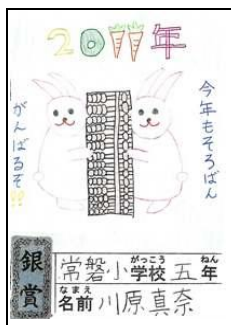 2011年
今年もそろばん
がんばるぞ!!
銀賞
常磐小学校五年
がっこう ねん
名前川原真奈
なまえ